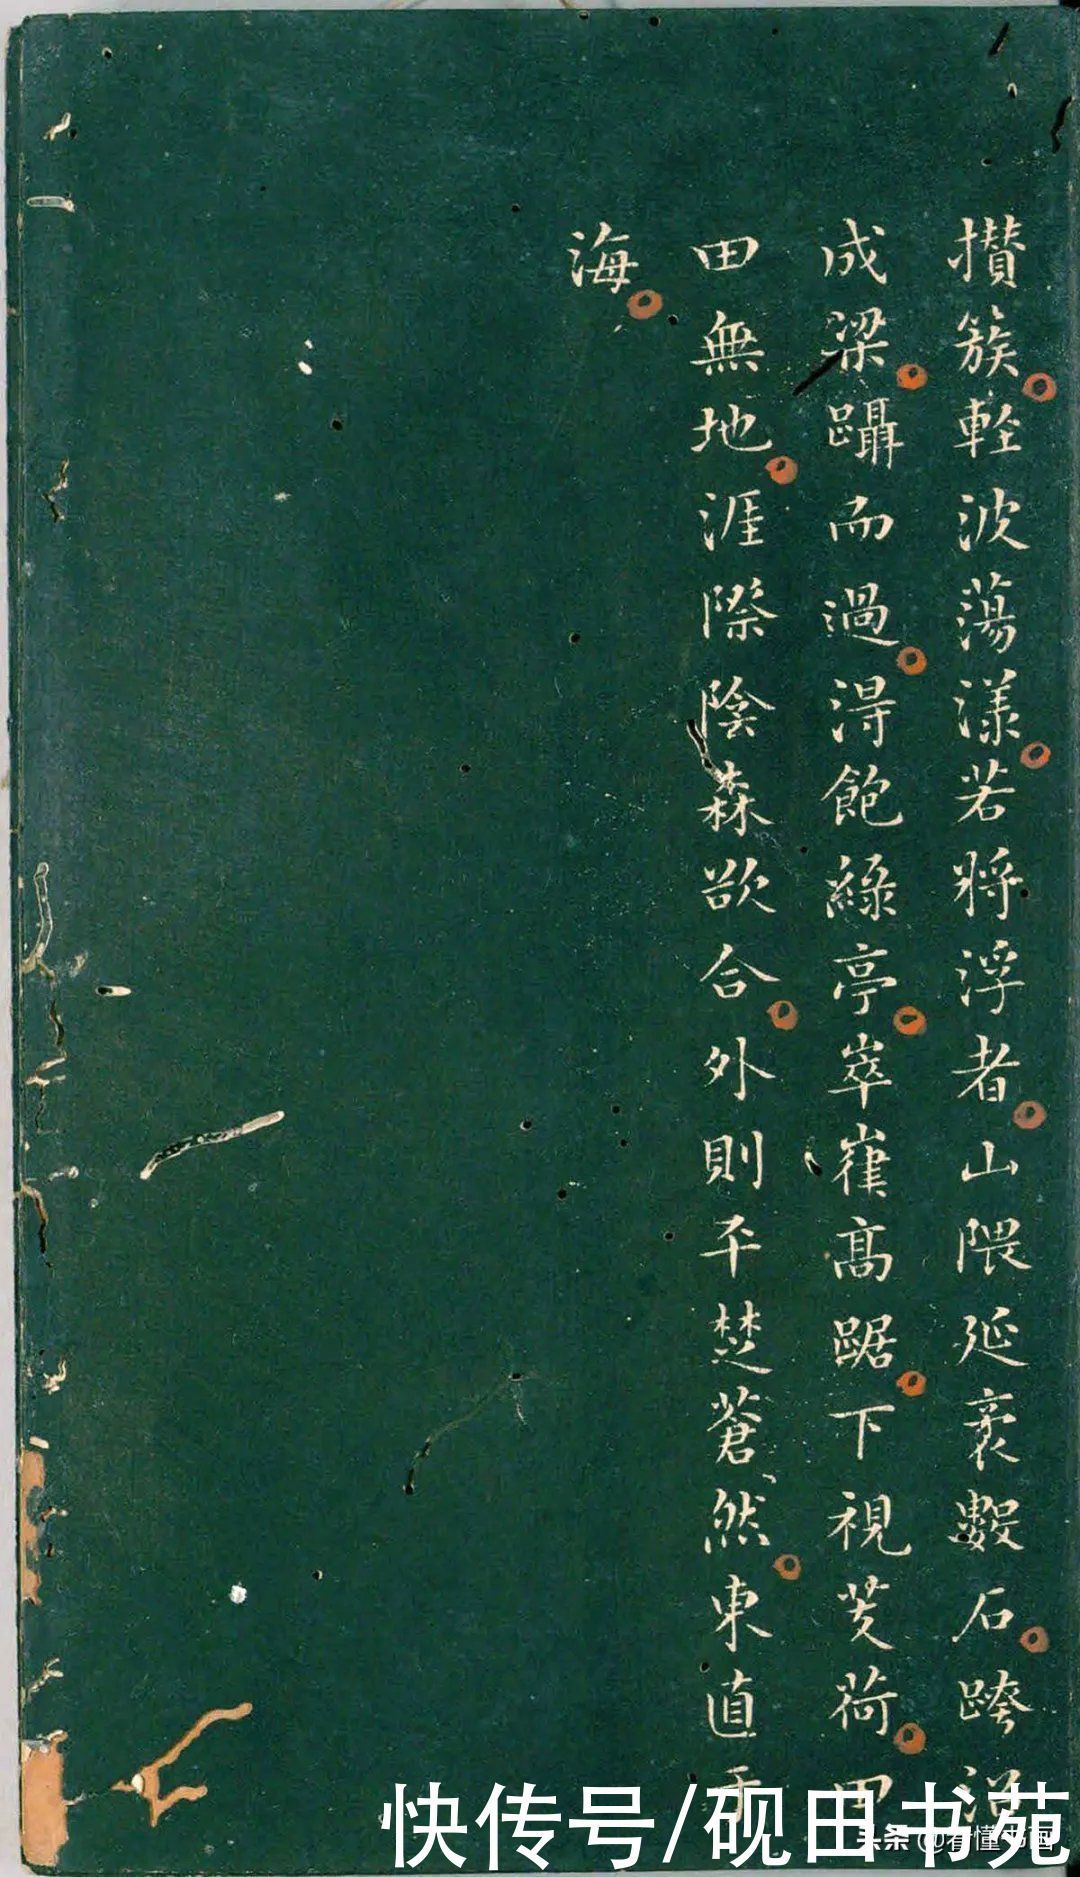 攅簇輕波蕩漾若將浮者山隈延袤數石跨沼
成梁躡而過淂飽綠亭崒嵂高踞下視芰荷田
田無地涯際陰森欲合外則平楚蒼然東直于
海
快传号/砚田书苑
头条 @看懂书画